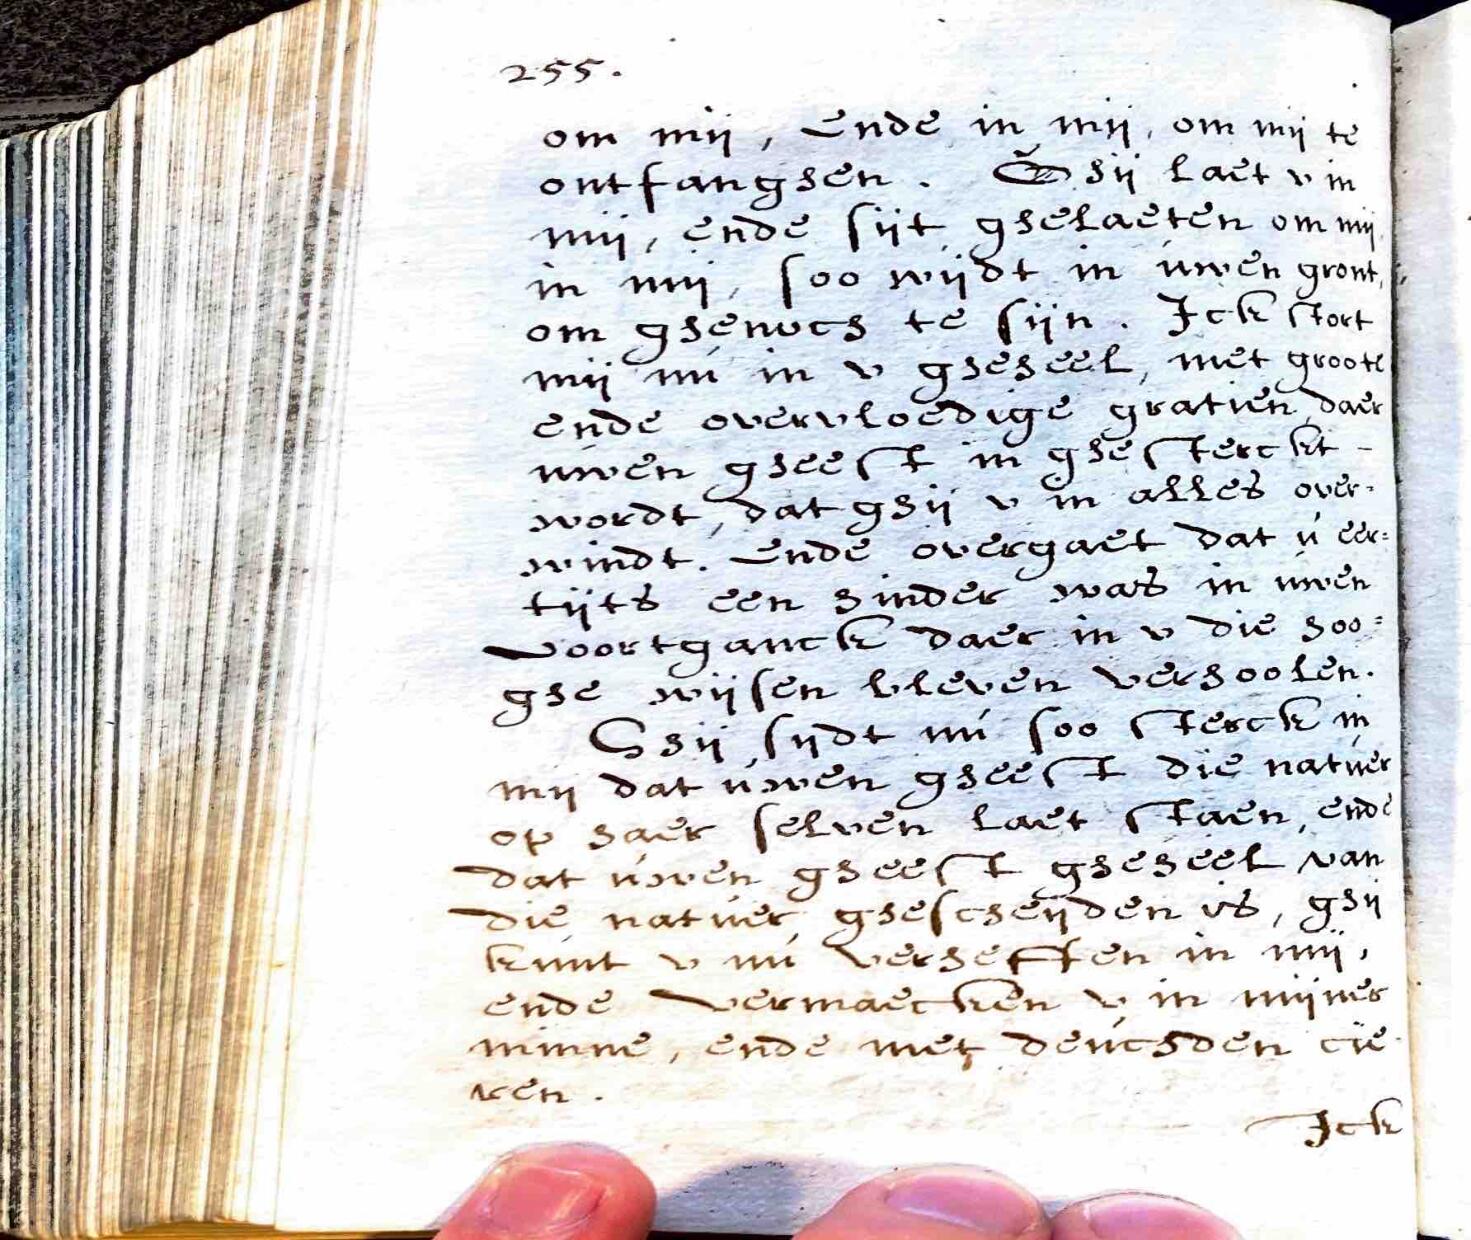 255.
om mij, ende in mij, om mij te
ontfanghen. Ghij laet v in
mij, ende sijt ghelaeten om mij
in mij, soo wijdt in úwen gront,
om ghenoch te sijn. Ick stort
mij nú in v gheheel, met groote
ende overvloedige gratien daer
uwen gheest in ghesterckt -
wordt, dat ghij v in alles over-
windt. Ende overgaet dat ú eer=
tijts een hinder was in uwen
voortganck daer in v die hoo=
ghe wijsen bleven verhoolen.
Ghij sijdt nú soo sterck in
mij dat úwen gheest die natúer
op haer selven laet staen, ende
dat úwen gheest gheheel van
die natúer ghescheijden is, ghij
kúnt v nú verheffen in mij,
ende vermaecken v in mijner
minne, ende met deúchden cie-
ren.
Ick